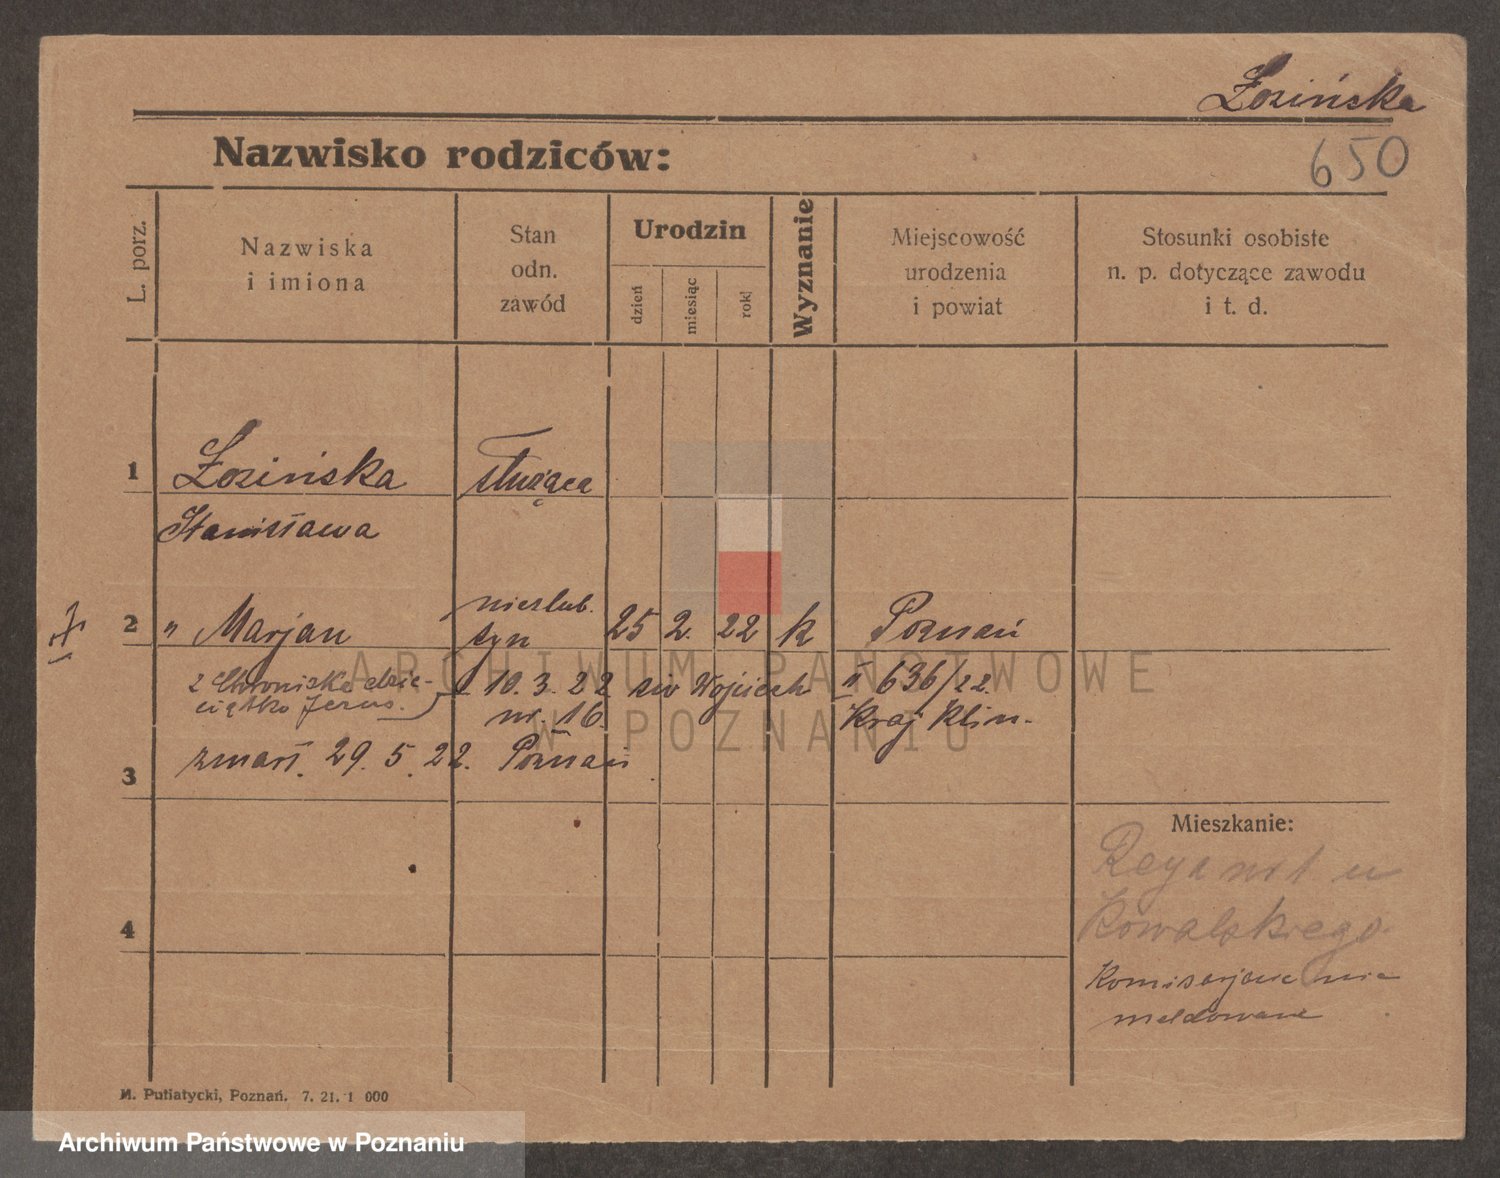 Łozińska
Nazwisko rodziców:
650
L. porz.
Nazwiska
i imiona
Stan
odn.
zawód
Urodzin
dzień
miesiąc
rok
Wyznanie
Miejscowość
urodzenia
i powiat
Stosunki osobiste
n. p. dotyczące zawodu
i t. d.
1 Łozińska służąca
Stanisława
nieślub.
2 " Marjan syn 25 2. 22 k Poznań
z Chroniska dzie- 10. 3. 22 św Wojciech II 636/22.
ciątko Jezus. nr. 16. Kraj Klin.
zmarł. 29. 5. 22. Poznań
3
Mieszkanie:
Reya nr 1 u
4 Kowalskiego
Komisarjacie nie
meldowana
M. Putiatycki, Poznań. 7. 21. 1 000
ARCHIWUM PAŃSTWOWE
W POZNANIU
Archiwum Państwowe w Poznaniu